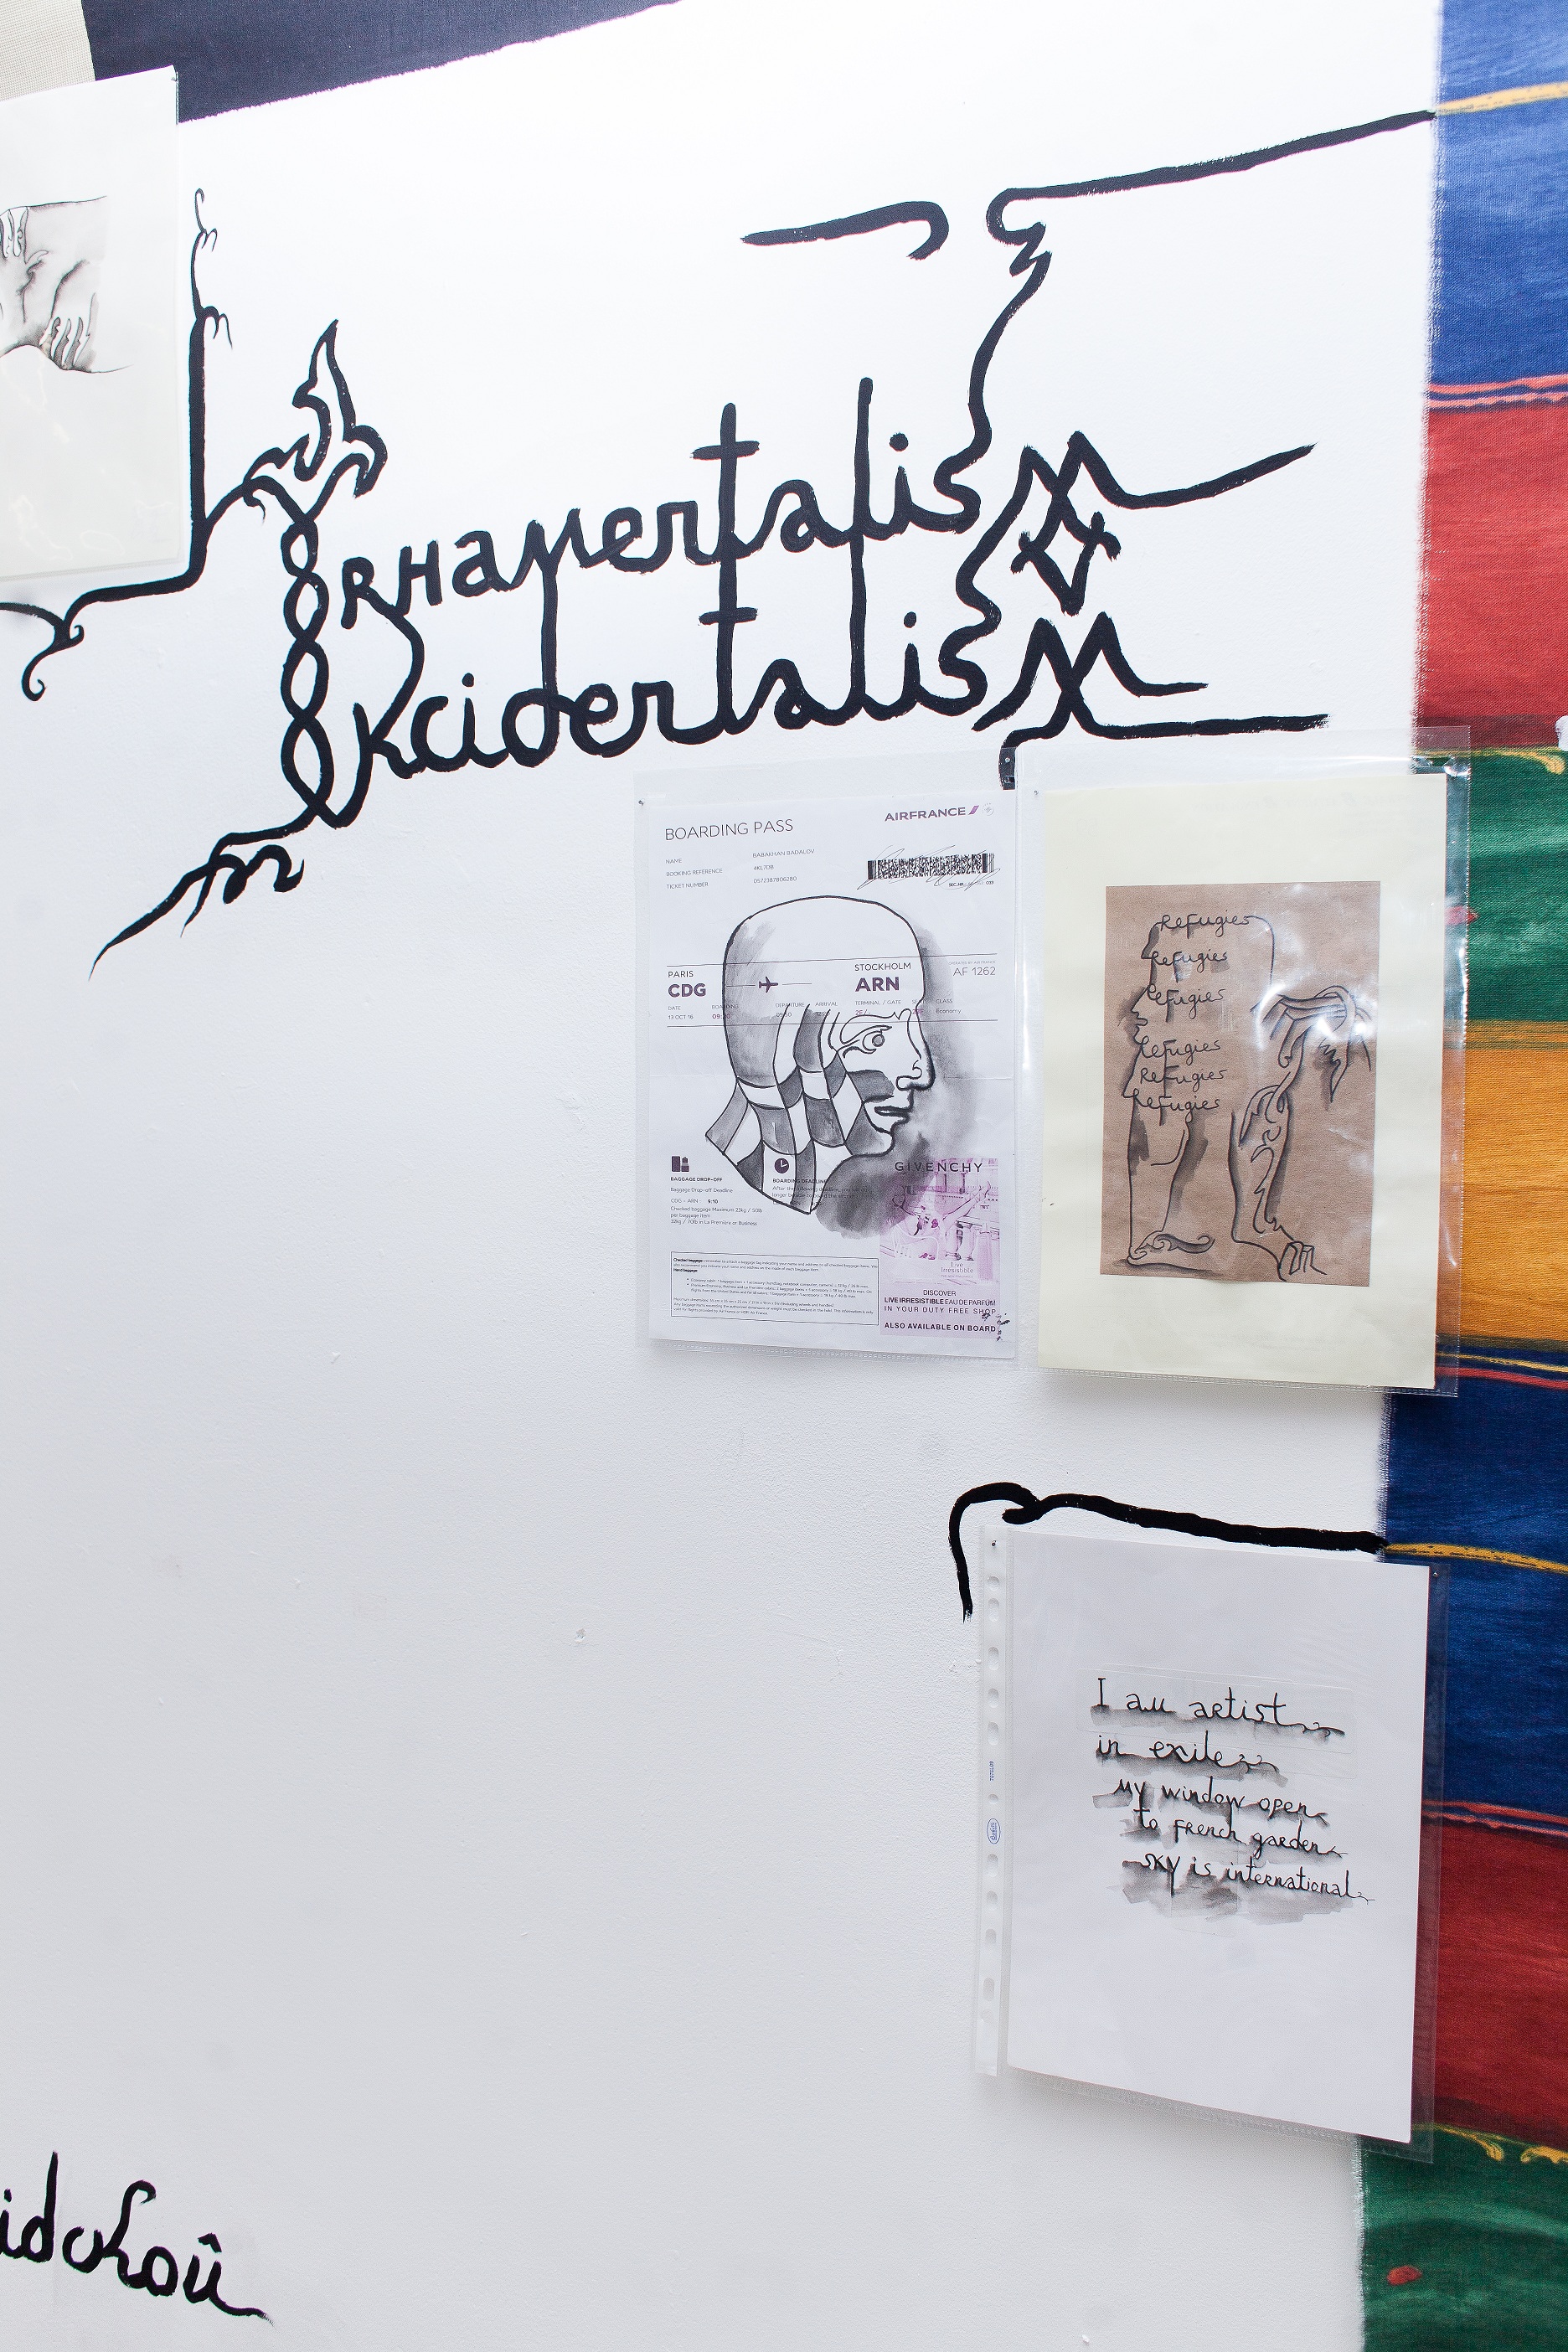 ORHAMENTALISM
OKCIDENTALISM
BOARDING PASS
AIRFRANCE
NAME BABAKHAN BADALOV
BOOKING REFERENCE 4KL7DB
TICKET NUMBER
PARIS
CDG
STOCKHOLM
ARN
AF 1262
DATE
ARRIVAL
TERMINAL / GATE
CLASS
13 OCT 16
Economy
BAGGAGE DROP-OFF
Baggage Drop-off Deadline
CDG - ARN 9:10
Checked baggage Maximum 23kg / 50lb
per baggage item
32kg / 70lb in La Première or Business
BOARDING DEADLINE
GIVENCHY
Live
Irrésistible
DISCOVER
LIVE IRRÉSISTIBLE EAU DE PARFUM
IN YOUR DUTY FREE SHOP
ALSO AVAILABLE ON BOARD
Refugies
Refugies
Refugies
Refugies
Refugies
Refugies
I am artist
in exile
my window open
to french garden
sky is international